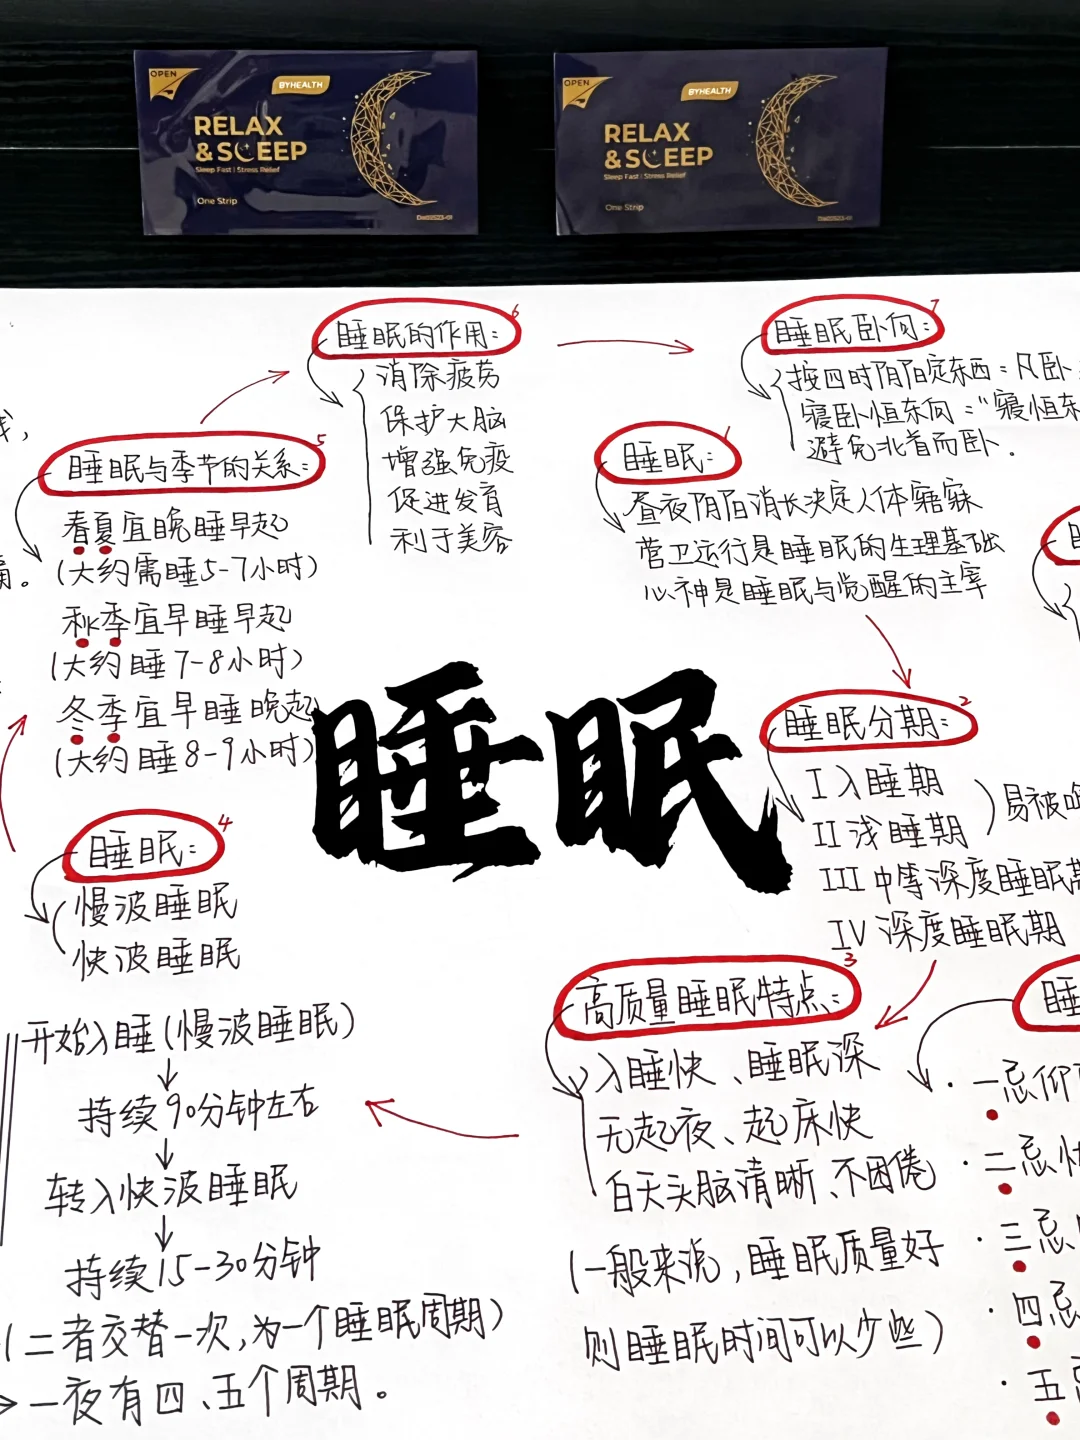 OPEN
BYHEALTH
RELAX
& SLEEP
Sleep Fast | Stress Relief
One Strip
DX02S23-01
OPEN
BYHEALTH
RELAX
& SLEEP
Sleep Fast | Stress Relief
One Strip
DX02S23-01
6
睡眠的作用:
消除疲劳
保护大脑
增强免疫
促进发育
利于美容
7
睡眠卧向:
按四时阴阳定东西:凡卧
寝卧恒东向:"寝恒东
避免北首而卧.
1
睡眠:
昼夜阴阳消长决定人体寤寐
营卫运行是睡眠的生理基础
心神是睡眠与觉醒的主宰
5
睡眠与季节的关系:
春夏宜晚睡早起
(大约需睡5-7小时)
秋季宜早睡早起
(大约睡7-8小时)
冬季宜早睡晚起
(大约睡8-9小时)
睡眠
2
睡眠分期:
I 入睡期
II 浅睡期
易被
III 中等深度睡眠
IV 深度睡眠期
4
睡眠:
慢波睡眠
快波睡眠
开始入睡(慢波睡眠)
持续90分钟左右
转入快波睡眠
持续15-30分钟
(二者交替一次,为一个睡眠周期)
一夜有四、五个周期。
3
高质量睡眠特点:
入睡快、睡眠深
无起夜、起床快
白天头脑清晰、不困倦
(一般来说,睡眠质量好
则睡眠时间可以少些)
睡
·一忌仰
·二忌
·三忌
·四忌
·五忌